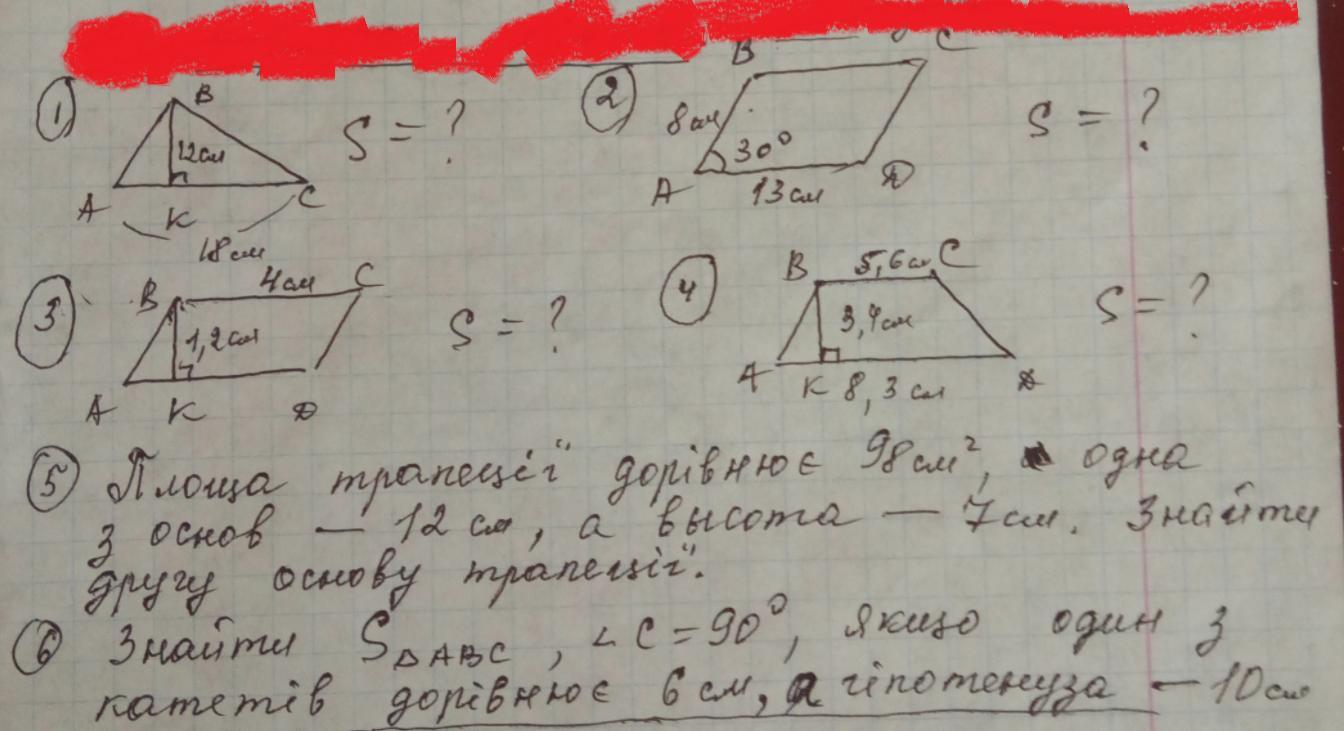 ① B 12см A K C 18см S = ?
② B C 8см 30° A D 13см S = ?
③ B 4см C 1,2см A K D S = ?
④ B 5,6см C 3,4см A K 8,3 см D S = ?
⑤ Площа трапеції дорівнює 98см², одна
з основ — 12 см, а высота — 7см. Знайти
другу основу трапеції.
⑥ Знайти S△ABC, ∠C=90°, якщо один з
катетів дорівнює 6см, а гіпотенуза — 10см